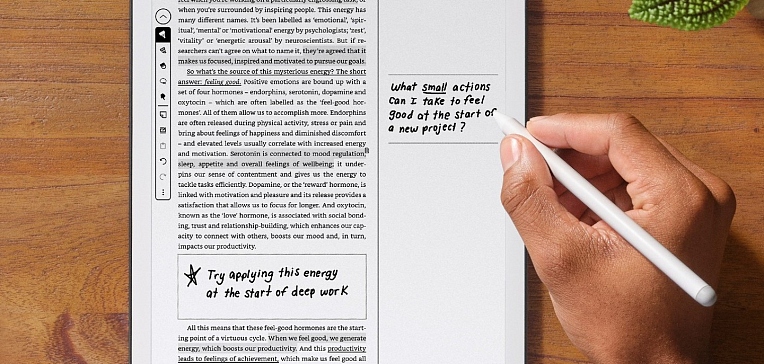 when you're surrounded by inspiring people. This energy has
many different names. It's been labelled as 'emotional', 'spir-
itual', 'mental' or 'motivational' energy by psychologists; 'zest',
'vitality' or 'energetic arousal' by neuroscientists. But if re-
searchers can't agree on what to name it, they're agreed that it
makes us focused, inspired and motivated to pursue our goals.
So what's the source of this mysterious energy? The short
answer: feeling good. Positive emotions are bound up with a
set of four hormones – endorphins, serotonin, dopamine and
oxytocin – which are often labelled as the 'feel-good hor-
mones'. All of them allow us to accomplish more. Endorphins
are often released during physical activity, stress or pain and
bring about feelings of happiness and diminished discomfort
– and elevated levels usually correlate with increased energy
and motivation. Serotonin is connected to mood regulation,
sleep, appetite and overall feelings of wellbeing; it under-
pins our sense of contentment and gives us the energy to
tackle tasks efficiently. Dopamine, or the 'reward' hormone, is
linked with motivation and pleasure and its release provides a
satisfaction that allows us to focus for longer. And oxytocin,
known as the 'love' hormone, is associated with social bond-
ing, trust and relationship-building, which enhances our cap-
acity to connect with others, boosts our mood and, in turn,
impacts our productivity.
Try applying this energy
at the start of deep work
All this means that these feel-good hormones are the start-
ing point of a virtuous cycle. When we feel good, we generate
energy, which boosts our productivity. And this productivity
leads to feelings of achievement, which make us feel good all
What small actions
can I take to feel
good at the start of
a new project?